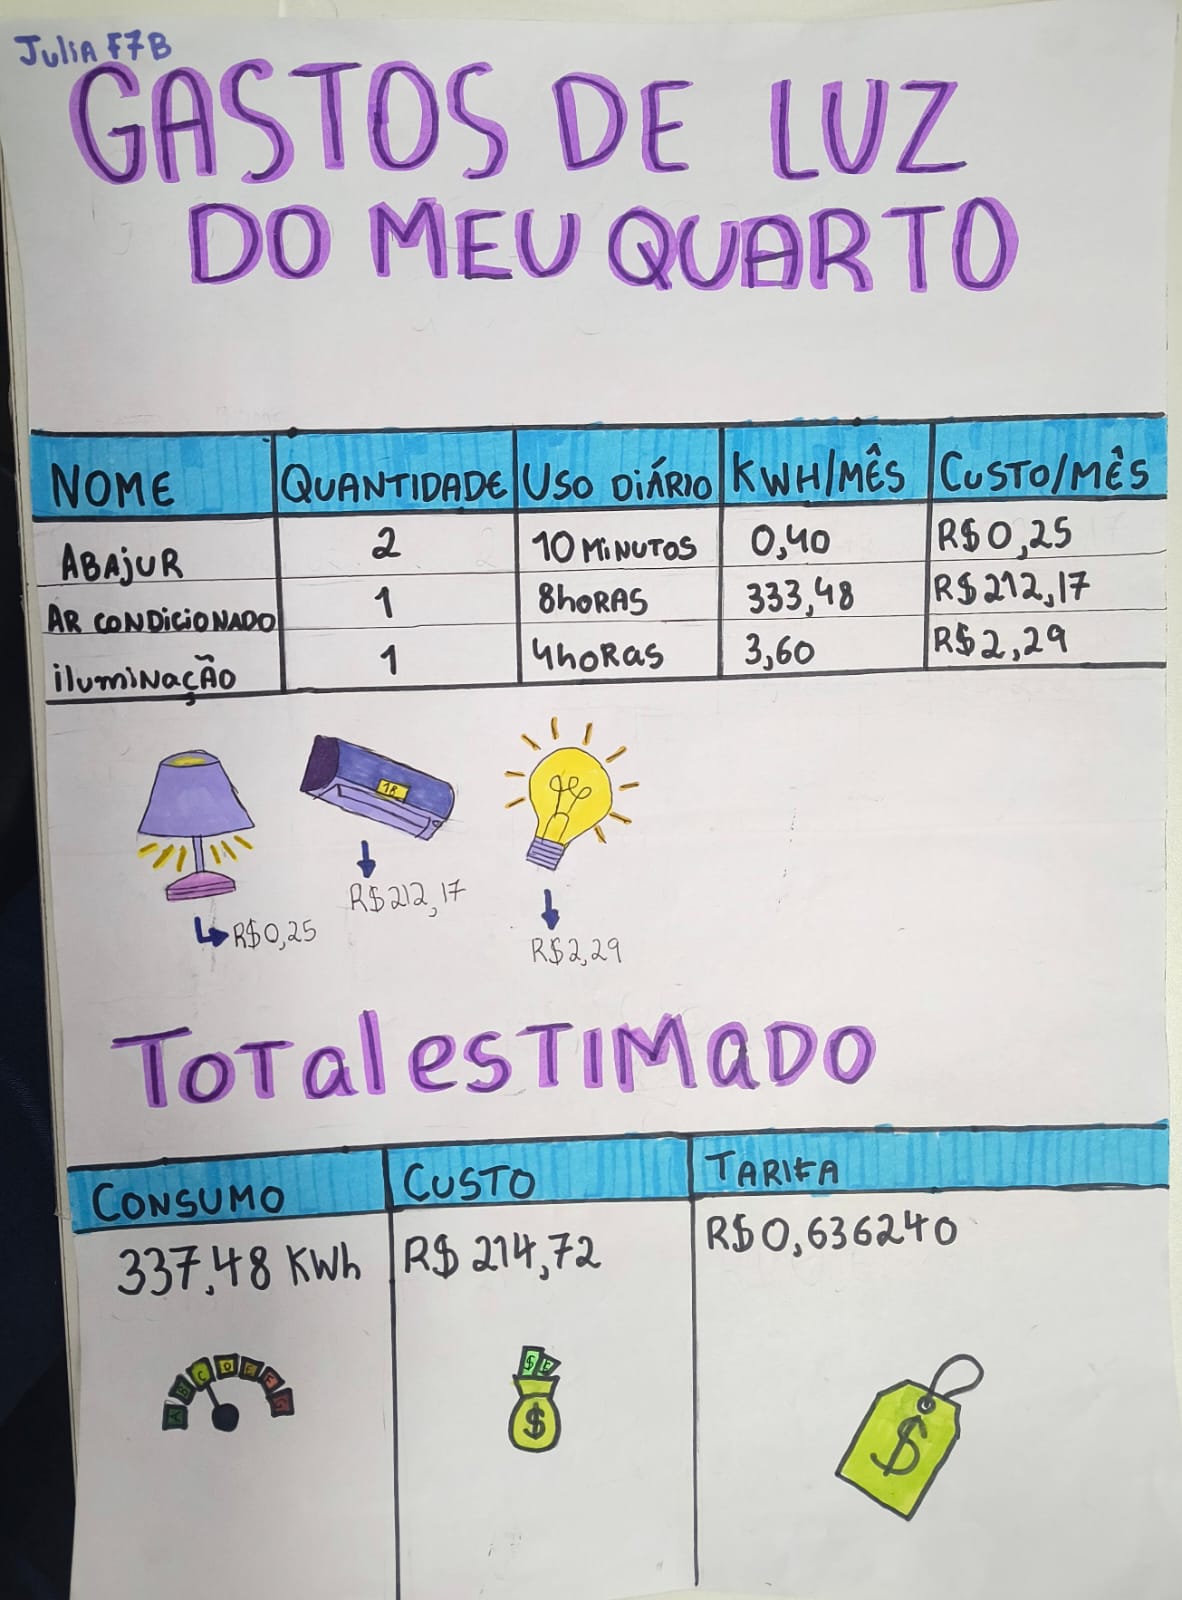 Julia F7B
GASTOS DE LUZ
DO MEU QUARTO
NOME QUANTIDADE USO DIÁRIO KWH/MÊS CUSTO/MÊS
ABAJUR 2 10 MINUTOS 0,40 R$0,25
AR CONDICIONADO 1 8 hORAS 333,48 R$212,17
iluminAÇÃO 1 4 hORas 3,60 R$2,29
R$0,25
R$212,17
R$2,29
Total esTIMaDO
CONSUMO CUSTO TARIFA
337,48 KWh R$ 214,72 R$0,636240
A B C D E F G
$
$